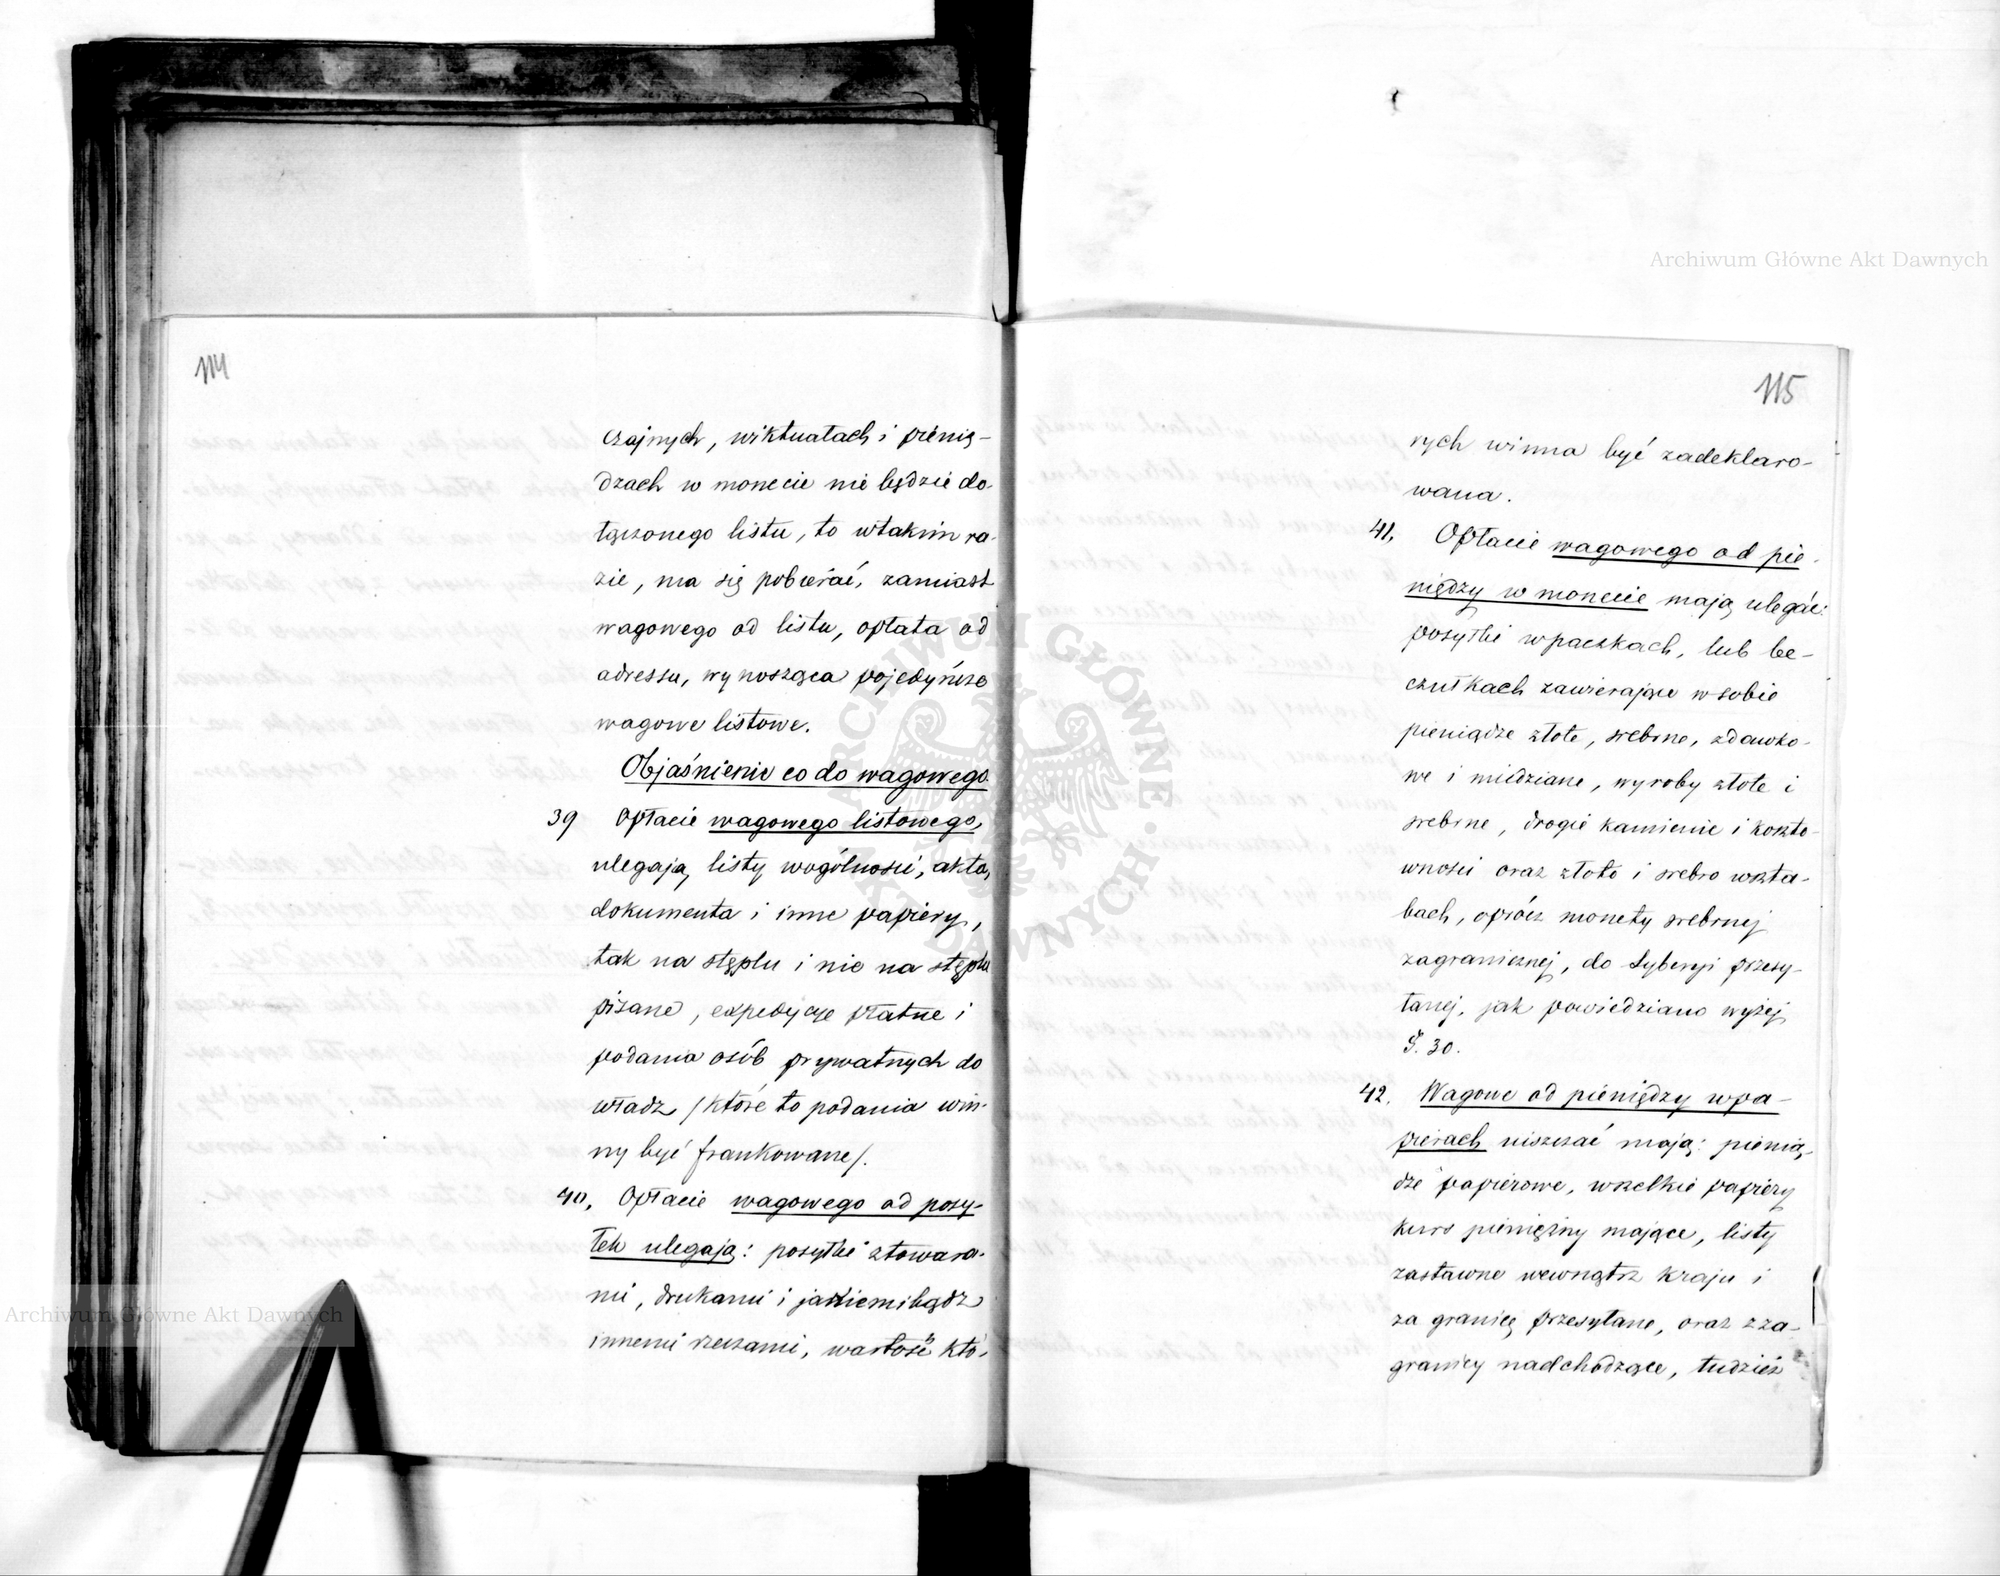 114
czajnych, wiktuałach i pienią-
dzach w monecie nie będzie do-
łączonego listu, to wtakim ra-
zie, ma się pobierać, zamiast
wagowego od listu, opłata od
adressu, wynosząca pojedyńcze
wagowe listowe.
Objaśnienie co do wagowego
39 Opłacie wagowego listowego,
ulegają, listy wogólności, akta,
dokumenta i inne papiery,
tak na stęplu i nie na stęplu
pisane, expedycje płatne i
podania osób prywatnych do
władz /które to podania win-
ny być frankowane/.
40, Opłacie wagowego od posy-
łek ulegają: posyłki ztowara-
mi, drukami i jakiemibądź
innemi rzeczami, wartość któ-
115
rych winna być zadeklaro-
wana.
41, Opłacie wagowego od pie-
niędzy w monecie mają ulegać:
posyłki wpaczkach, lub be-
czułkach zawierające w sobie
pieniądze złote, srebrne, zdawko-
we i miedziane, wyroby złote i
srebrne, drogie kamienie i koszto-
wności oraz złoto i srebro wszta-
bach, oprócz monety srebrnej
zagranicznej, do Syberyi przesy-
łanej, jak powiedziano wyżej
§. 30.
42. Wagowe od pieniędzy wpa-
pierach uiszczać mają: pienią-
dze papierowe, wszelkie papiery
kurs pieniężny mające, listy
zastawne wewnątrz kraju i
za granicę przesyłane, oraz zza-
granicy nadchodzące, tudzież
Archiwum Główne Akt Dawnych
Archiwum Główne Akt Dawnych
ARCHIWUM GŁÓWNE AKT DAWNYCH